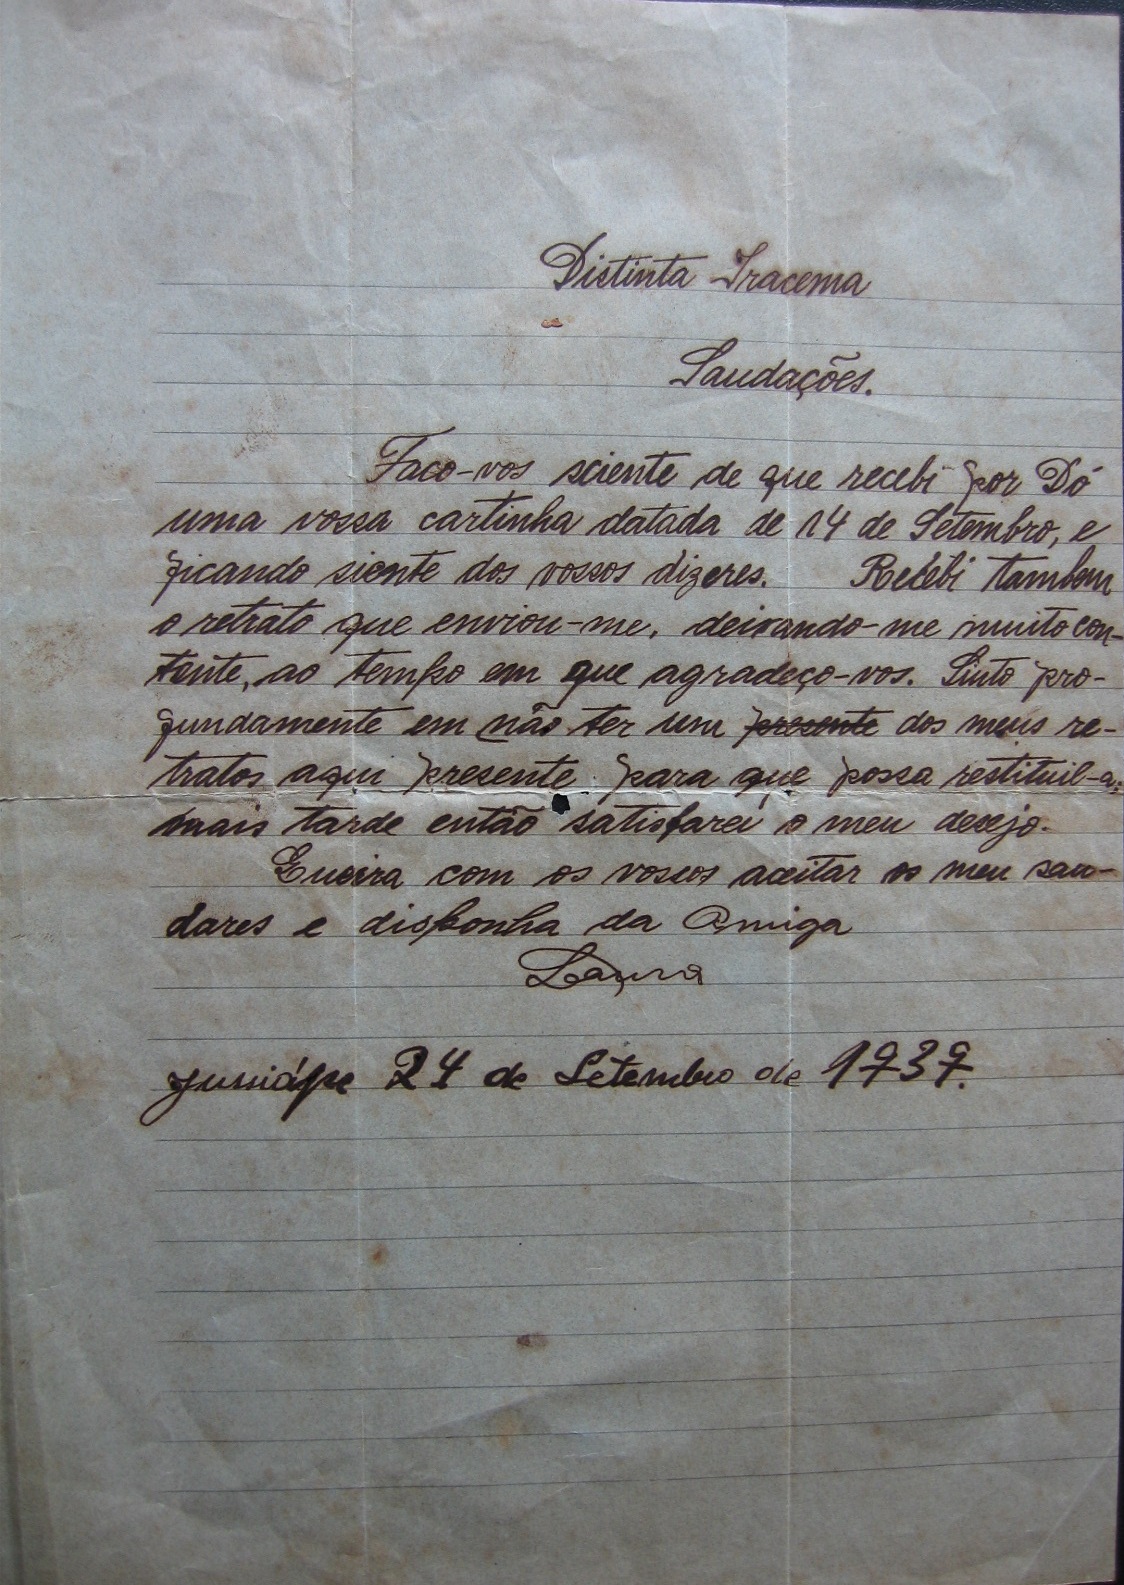 Distinta Iracema
Saudações.
Faco-vos sciente de que recebi por Dó
uma vossa cartinha datada de 14 de Setembro, e
ficando siente dos vossos dizeres. Recebi tambem
o retrato que enviou-me, deixando-me muito con-
tente, ao tempo em que agradeço-vos. Sinto pro-
fundamente em não ter um presente dos meus re-
tratos aqui presente para que possa restituil-a;
mais tarde então satisfarei o meu desejo.
Queira com os vossos aceitar os meu sau-
dares e disponha da Amiga
Laura
Jussiápe 24 de Setembro de 1939.